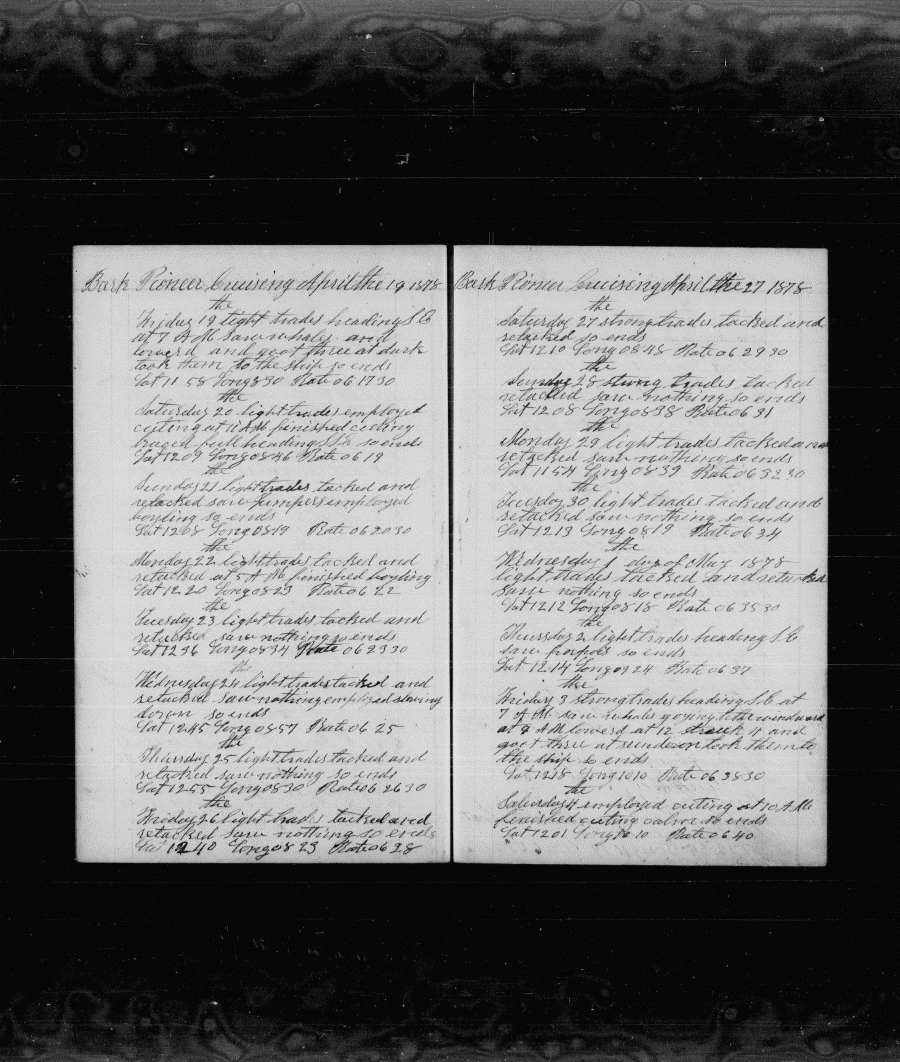 Bark Pioneer Cruising April the 19 1878
the
Friday 19 light trades heading S E
at 7 A M Saw whales and
lowerd and goot three at dark
took them to the ship so ends
Lat 11 58 Long 8 30 Rate 06 17 30
the
Saturday 20 light trades employed
cuting at 11 A M finished cuting
braced full heading S E so ends
Lat 12 09 Long 08 46 Rate 06 19
the
Sunday 21 light trades tacked and
retacked saw jumpers employed
boyling so ends
Lat 12 08 Long 08 19 Rate 06 20 30
the
Monday 22 light trades tacked and
retacked at 5 A M finished boyling
Lat 12 20 Long 08 23 Rate 06 22
the
Tuesday 23 light trades tacked and
retacked saw nothing so ends
Lat 12 36 Long 08 34 Rate 06 23 30
the
Wednesday 24 light trades tacked and
retacked saw nothing employed stowing
down so ends
Lat 12 45 Long 08 57 Rate 06 25
the
Thursday 25 light trades tacked and
retacked saw nothing so ends
Lat 12 55 Long 08 30 Rate 06 26 30
the
Friday 26 light trades tacked and
retacked saw nothing so ends
Lat 12 40 Long 08 23 Rate 06 28
Bark Pioneer Cruising April the 27 1878
the
Saturday 27 strong trades tacked and
retacked so ends
Lat 12 10 Long 08 48 Rate 06 29 30
the
Sunday 28 strong trades tacked
retacked saw nothing so ends
Lat 12 08 Long 08 38 Rate 06 31
the
Monday 29 light trades tacked and
retacked saw nothing so ends
Lat 11 54 Long 08 39 Rate 06 32 30
the
Tuesday 30 light trades tacked and
retacked saw nothing so ends
Lat 12 13 Long 08 19 Rate 06 34
the
Wednesday 1 day of May 1878
light trades tacked and retacked
saw nothing so ends
Lat 12 12 Long 08 18 Rate 06 35 30
the
Thursday 2 light trades heading S E
saw porpos so ends
Lat 12 14 Long 09 24 Rate 06 37
the
Friday 3 strong trades heading S E at
7 A M saw whals goying to the windward
at 8 A M lowerd at 12 struck 4 and
goot three at sundown took them to
the ship so ends
Lat 12 18 Long 10 10 Rate 06 38 30
the
Saturday 4 employed cuting at 10 A M
finished cuting calm so ends
Lat 12 01 Long 10 10 Rate 06 40